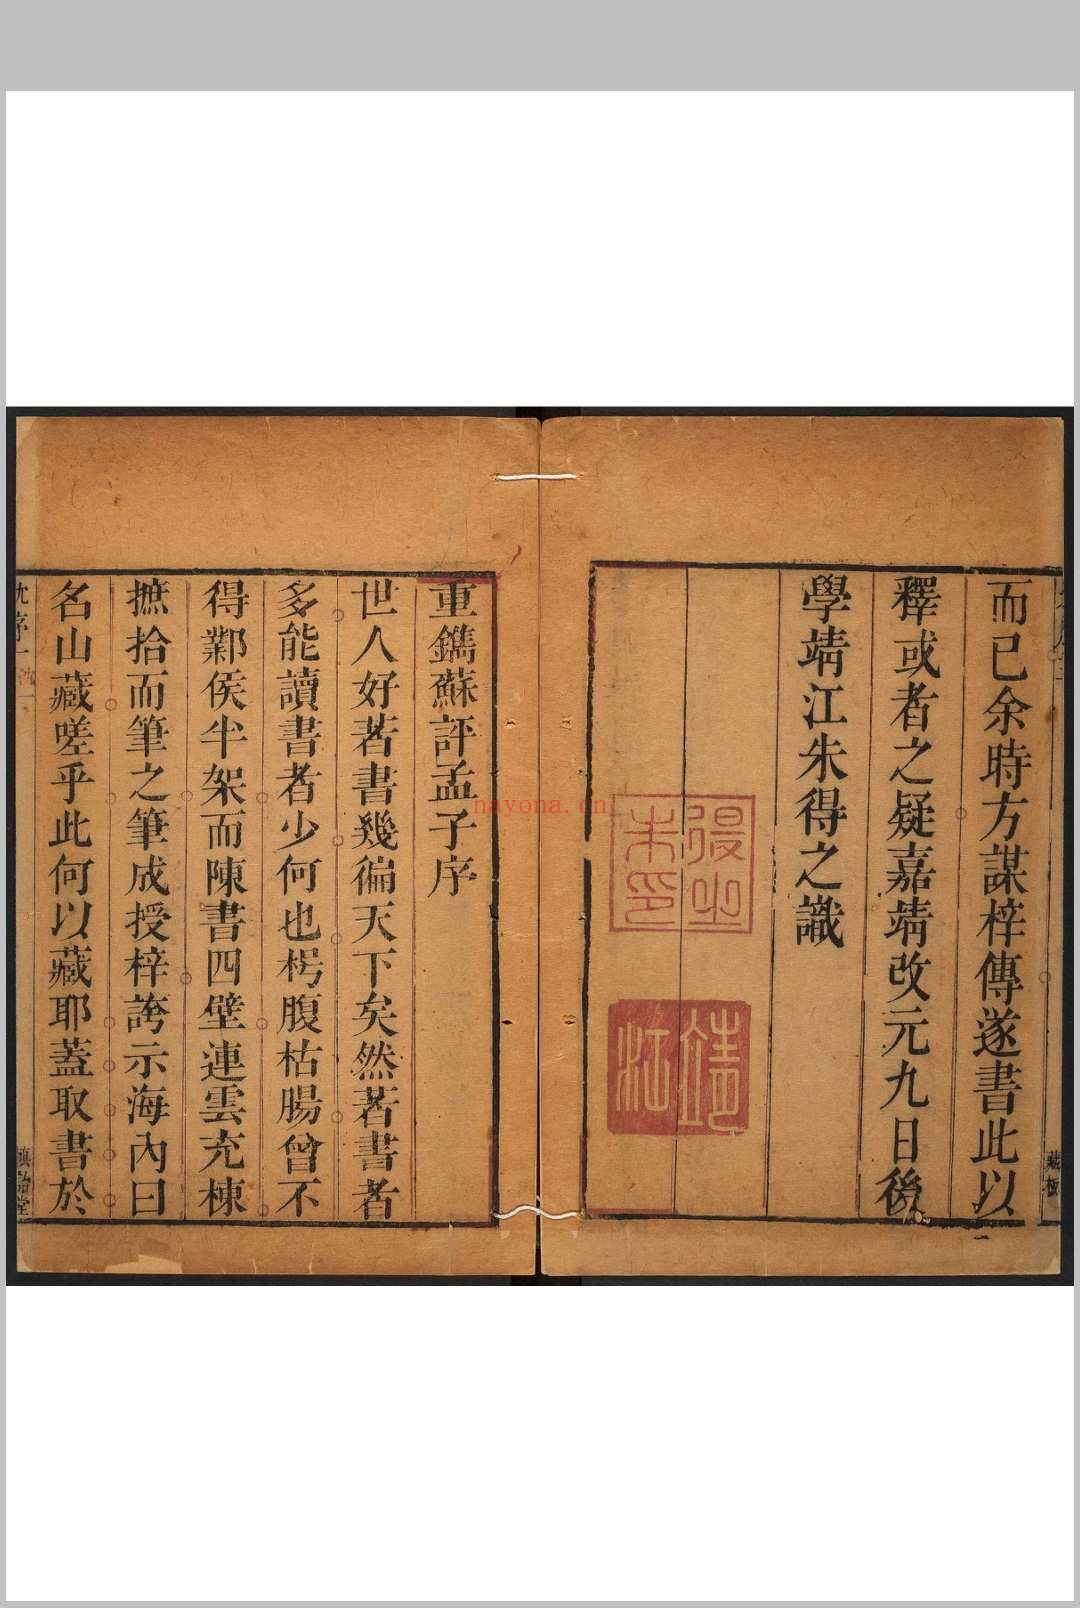 而已余時方謀梓傳遂書此以
釋或者之疑嘉靖改元九日後
學靖江朱得之識
靖江
重鐫蘇評孟子序
世人好著書幾徧天下矣然著書者
多能讀書者少何也枵腹枯腸曾不
得鄴侯半架而陳書四壁連雲充棟
摭拾而筆之筆成授梓誇示海內曰
名山藏嗟乎此何以藏耶蓋取書於
nayona.cn